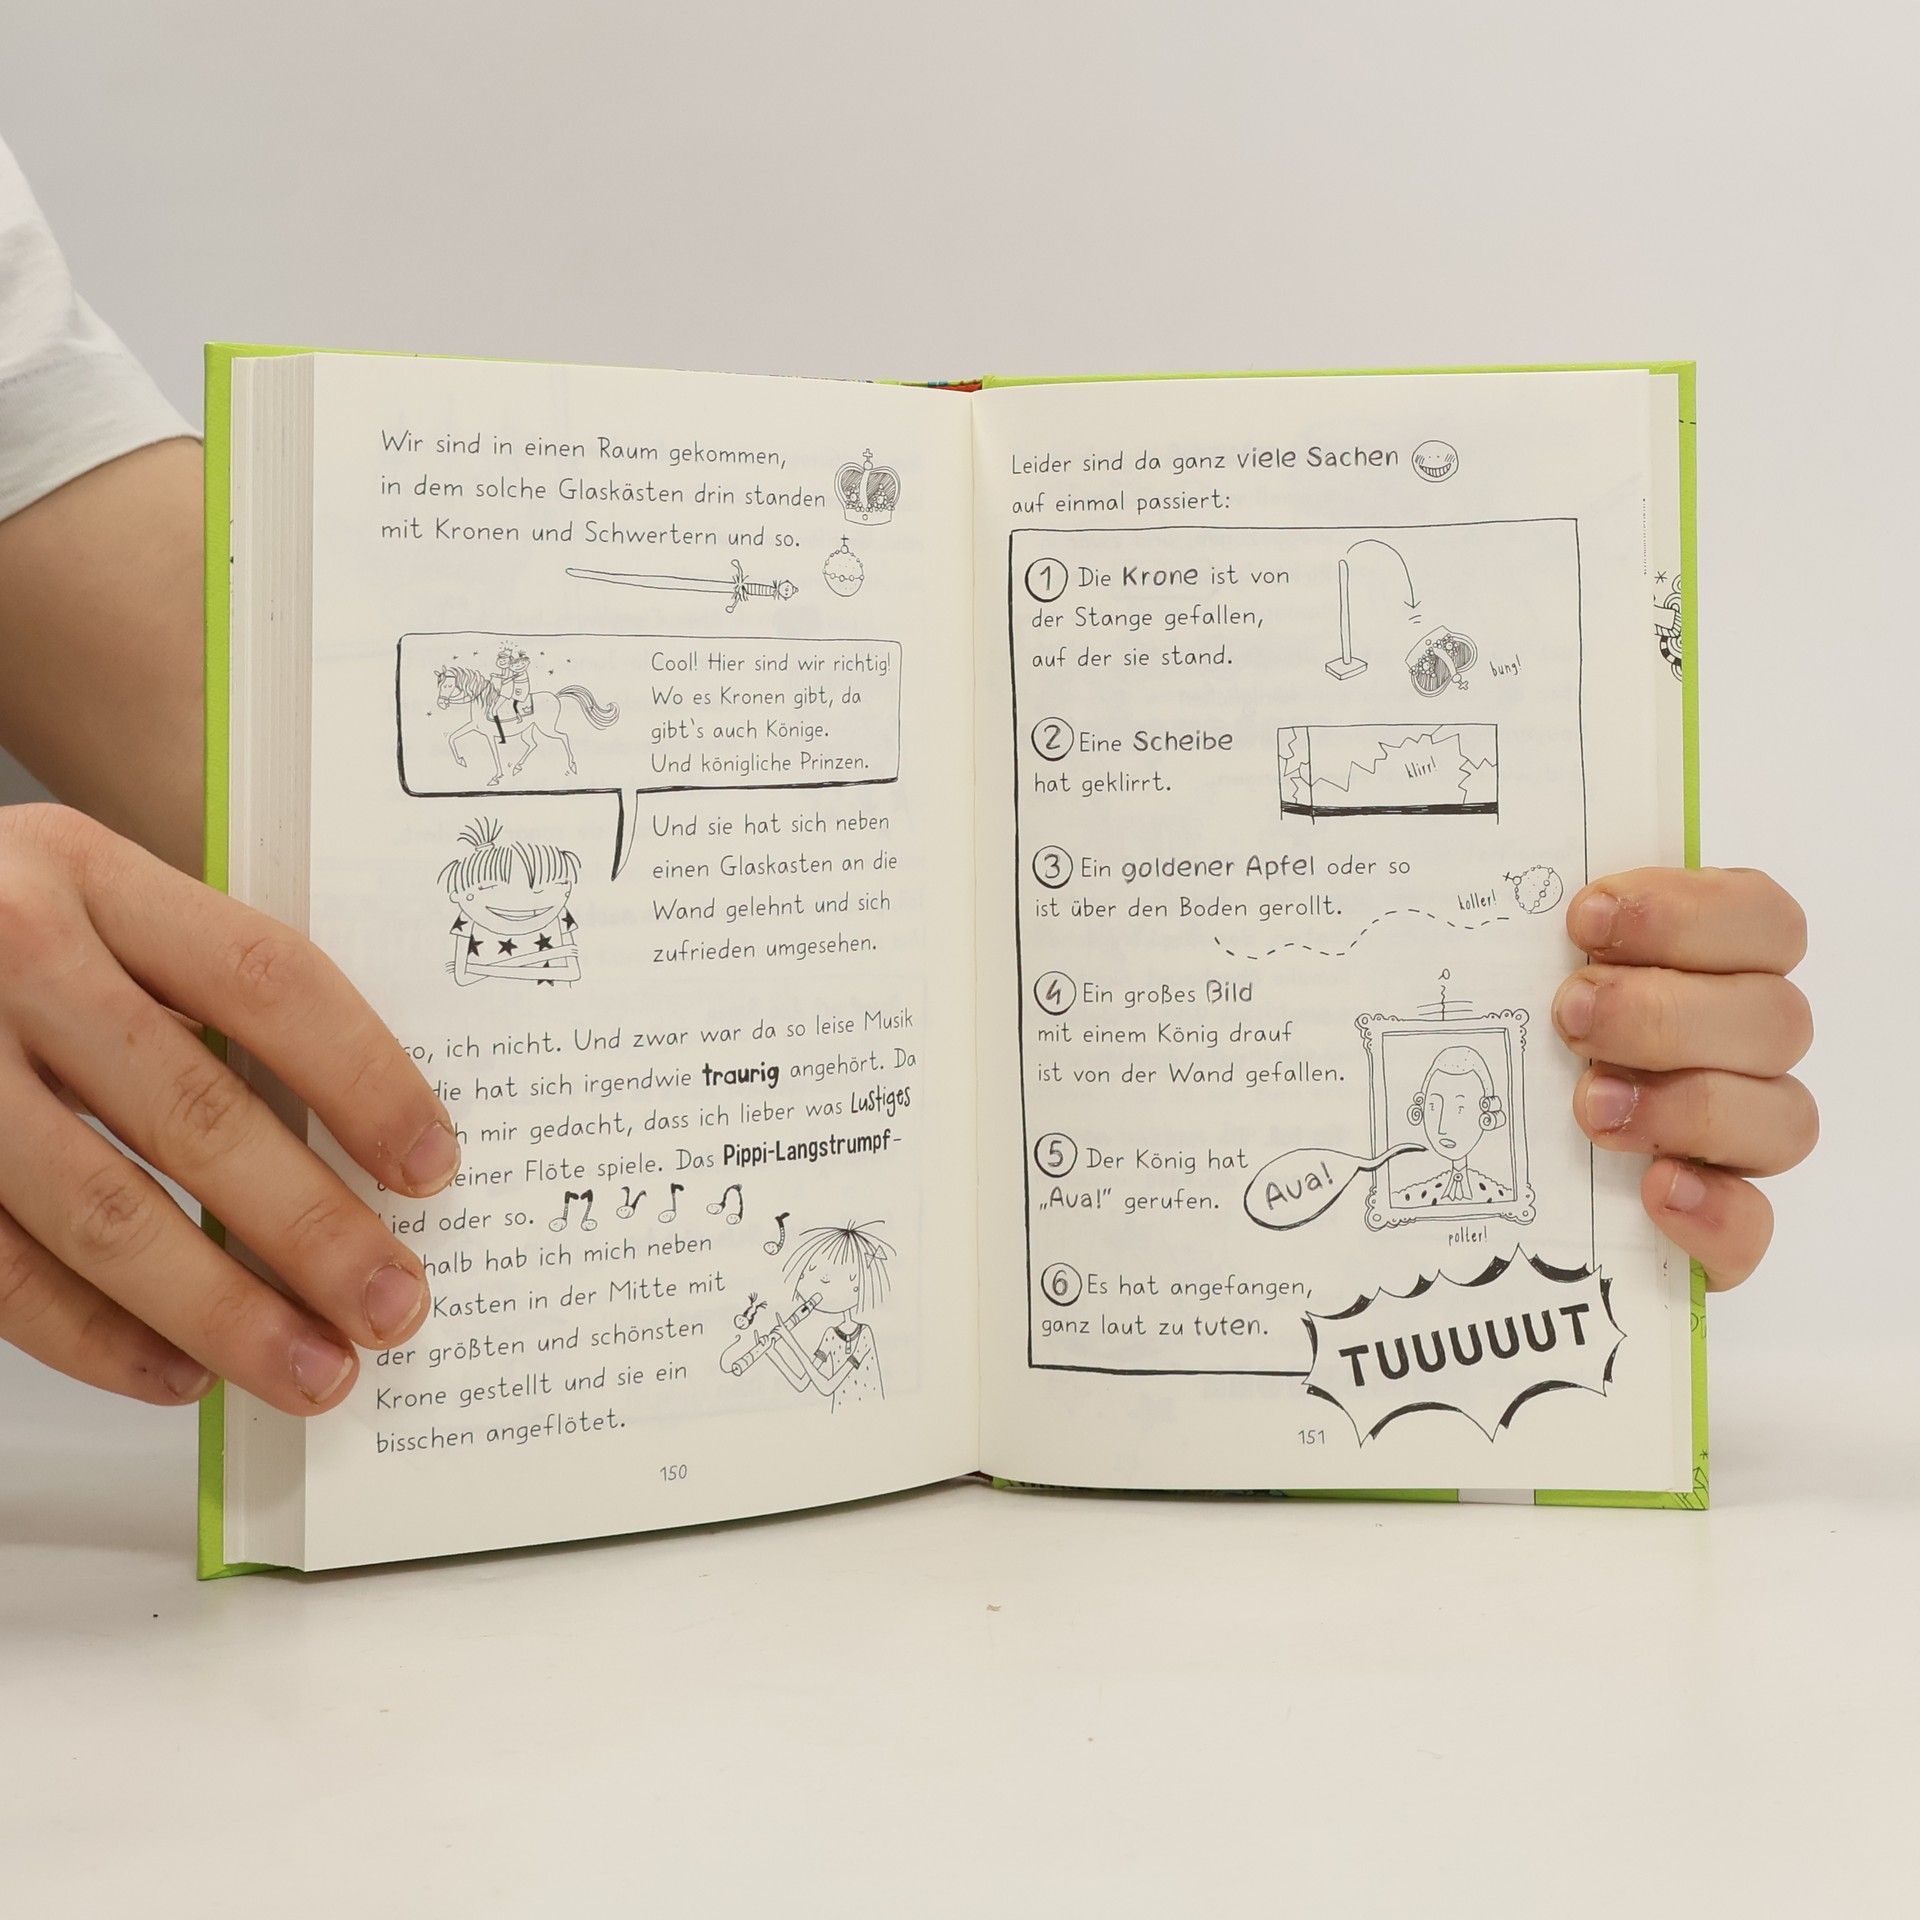 Wir sind in einen Raum gekommen,
in dem solche Glaskästen drin standen
mit Kronen und Schwertern und so.
Cool! Hier sind wir richtig!
Wo es Kronen gibt, da
gibt's auch Könige.
Und königliche Prinzen.
Und sie hat sich neben
einen Glaskasten an die
Wand gelehnt und sich
zufrieden umgesehen.
ich nicht. Und zwar war da so leise Musik
die hat sich irgendwie traurig angehört. Da
mir gedacht, dass ich lieber was Lustiges
Flöte spiele. Das Pippi-Langstrumpf-
Lied oder so.
hab ich mich neben
Kasten in der Mitte mit
der größten und schönsten
Krone gestellt und sie ein
bisschen angeflötet.
150
Leider sind da ganz viele Sachen
auf einmal passiert:
1 Die Krone ist von
der Stange gefallen,
auf der sie stand.
bung!
2 Eine Scheibe
hat geklirrt.
klirr!
3 Ein goldener Apfel oder so
ist über den Boden gerollt.
koller!
4 Ein großes Bild
mit einem König drauf
ist von der Wand gefallen.
5 Der König hat
„Aua!" gerufen.
Aua!
polter!
6 Es hat angefangen,
ganz laut zu tuten.
TUUUUUT
151